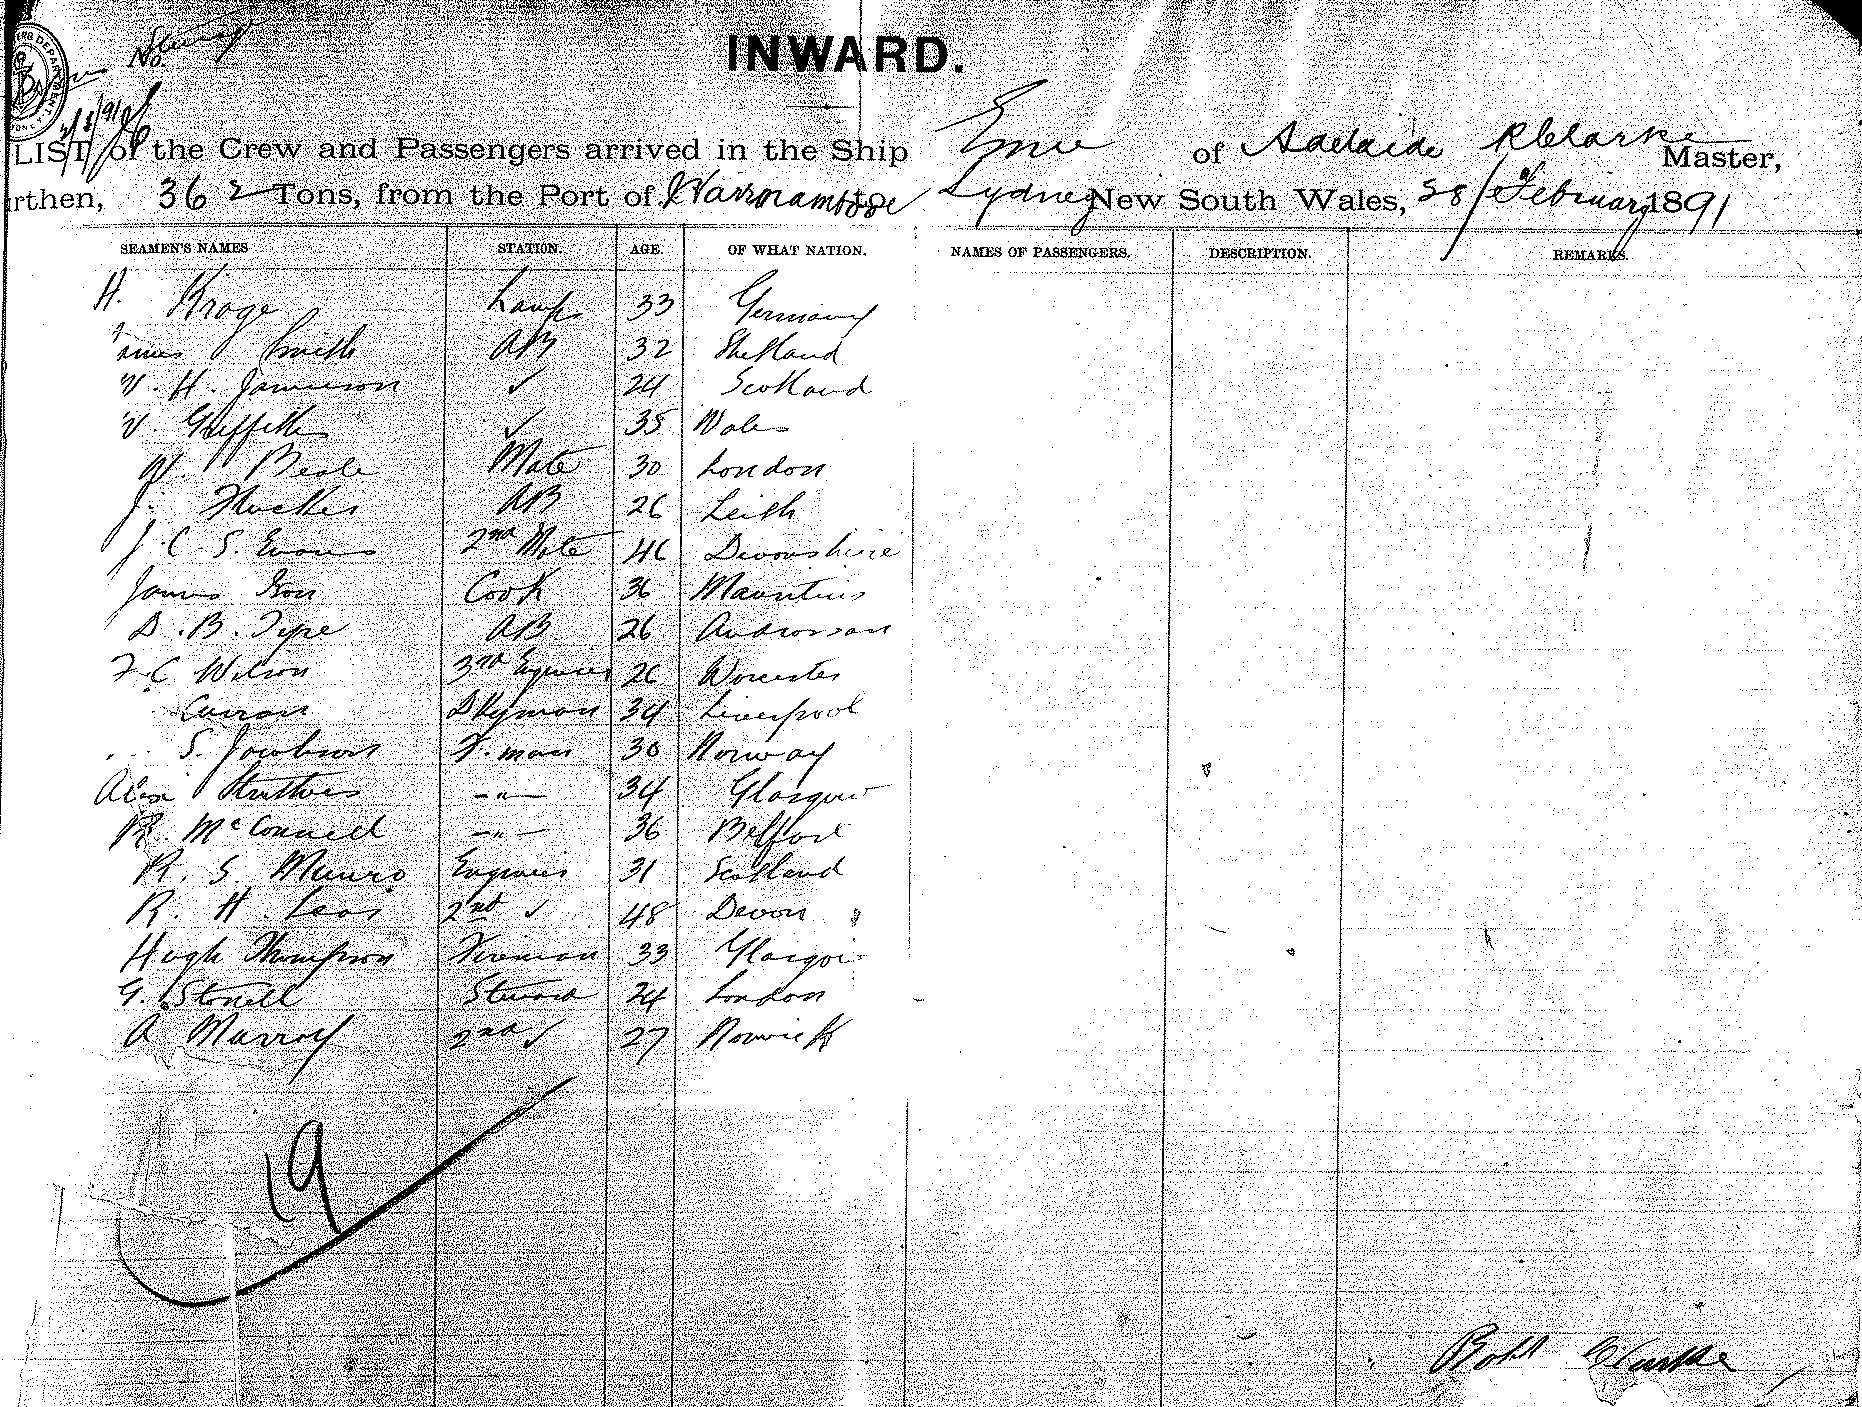 INWARD.
LIST of the Crew and Passengers arrived in the Ship Ernie of Adelaide R Clarke Master,
rthen, 362 Tons, from the Port of Warrnambool to Sydney New South Wales, 28/February 1891
SEAMEN'S NAMES STATION. AGE. OF WHAT NATION. NAMES OF PASSENGERS. DESCRIPTION. REMARKS.
H. Kroge Lamps 33 Germany
ames Smith AB 32 Shetland
W. H. Jamieson ✓ 24 Scotland
W. Griffiths ✓ 35 Wales
W. Beale Mate 30 London
J. AB 26 Leith
J C S. Evans 2nd Mate 46 Devonshire
James Gon Cook 36 Mauritius
D. B. Type AB 26 Androssan
F. C Wilson 3rd Engineer 26 Worcester
Curran DKyman 34 Liverpool
S. Jacobson F. man 30 Norway
Alex Struthers -"- 34 Glasgow
R. McConnell -"- 36 Belfast
R. S. Munro Engineer 31 Scotland
R. H. Leas 2nd ✓ 48 Devon
Hugh Thompson Fireman 33 Glasgow
G. Stonell Steward 24 London
A Murray 2nd ✓ 27
19
Robt Clarke